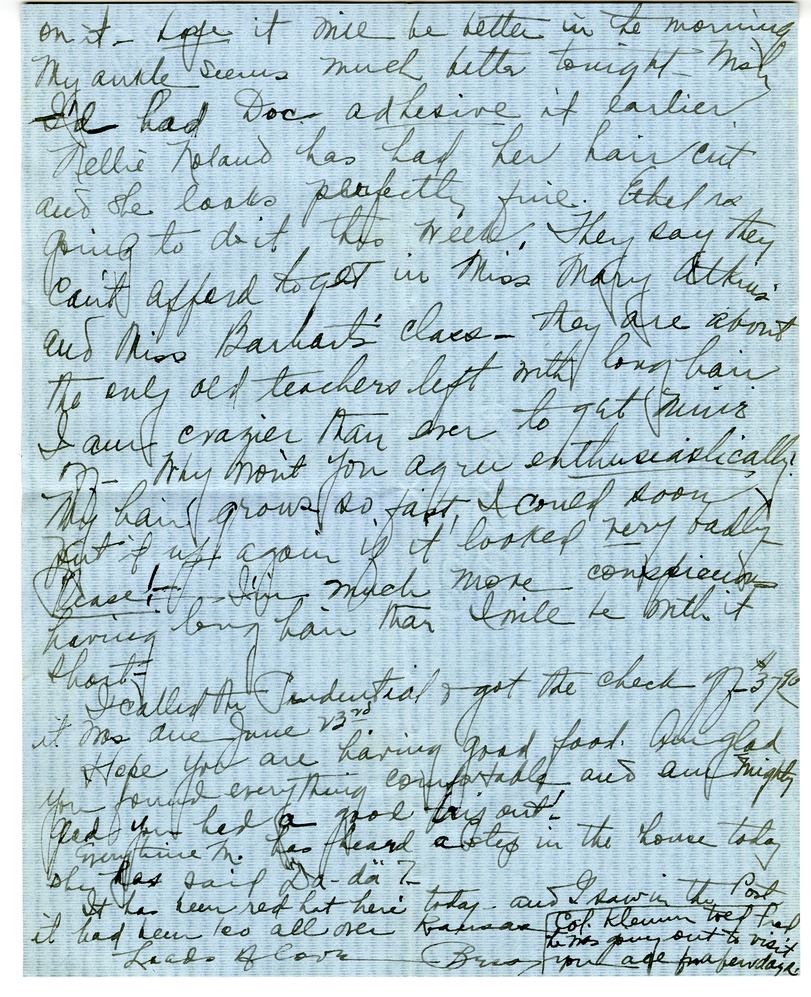 on it - hope it will be better in the morning
My ankle seems much better tonight - Wish
I'd had Doc. adhesive it earlier
Nellie Noland has had her hair cut
and she looks perfectly fine. Ethel is
going to do it this week. They say they
can't afford to get in Miss Mary Atkins'
and Miss Barhart's class - they are about
the only old teachers left with long hair
I am crazier than ever to get mine
off - Why won't you agree enthusiastically?
My hair grows so fast, I could soon
put it up again if it looked very badly
Please! - I'm much more conspicuous
having long hair than I will be with it
short -
I called the Prudential & got the check off $3790
it was due June 23rd
Hope you are having good food. Am glad
you found everything comfortable and am mighty
glad you had a good trip out!
Everytime M. has heard a step in the house today
she has said "Da-da"?
It has been red hot here today - and I saw in the Post
it had been 100 all over Kansas
Loads of love -
Bess
Col. Klemm told Fred
he was going out to visit
you all for few days.